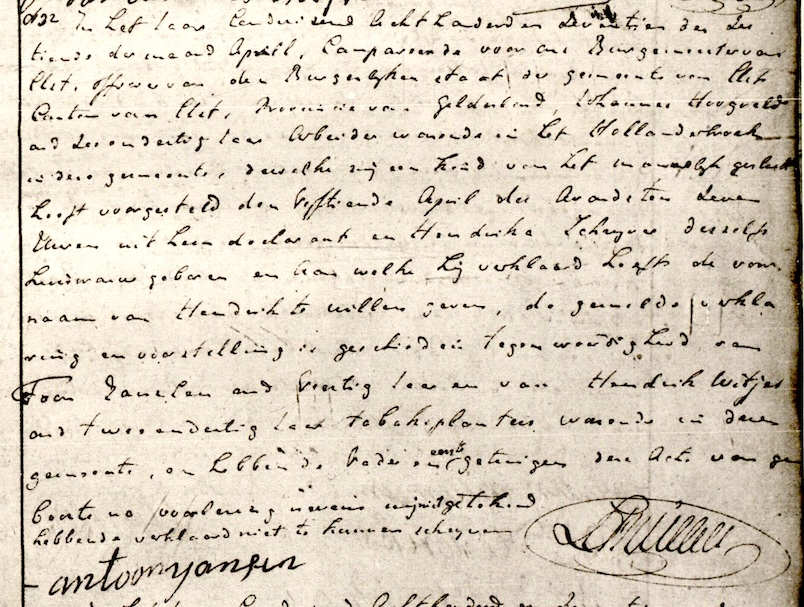 N32 In Het Jaar Eenduizend Achthonderd en Zeventien den Zes
tiende der maand April, Compareerde voor ons Burgemeester van
Elst, officier van den Burgerlyken staat der gemeente van Elst
Canton van Elst, Provincie van Gelderland, Johannes Hoogveld
oud Zesendertig Jaar Arbeider woonende in Het Hollanderbroek
in deze gemeente, dewelke my een Kind van het manlyk geslacht
heeft voorgesteld den Vyftiende April des Avonds ten Zeven
Uuren uit Hem declarant en Hendrika Scheyver desselfs
Huisvrouw geboren en Aan welke hy verklaard heeft de voor
naam van Hendrik te willen geven, de gemelde verkla
ring en voorstelling is geschied in tegenwoordigheid van
Toon Jansen oud Veertig Jaar en van Hendrik Witjes
oud tweeendertig Jaar tabaksplanters woonende in dezen
gemeente, en hebben de Vader en eerste getuigen deze Acte van ge
boorte na voorlezing nevens my niet getekend
hebbende verklaard niet te kunnen schryven
antoon jansen